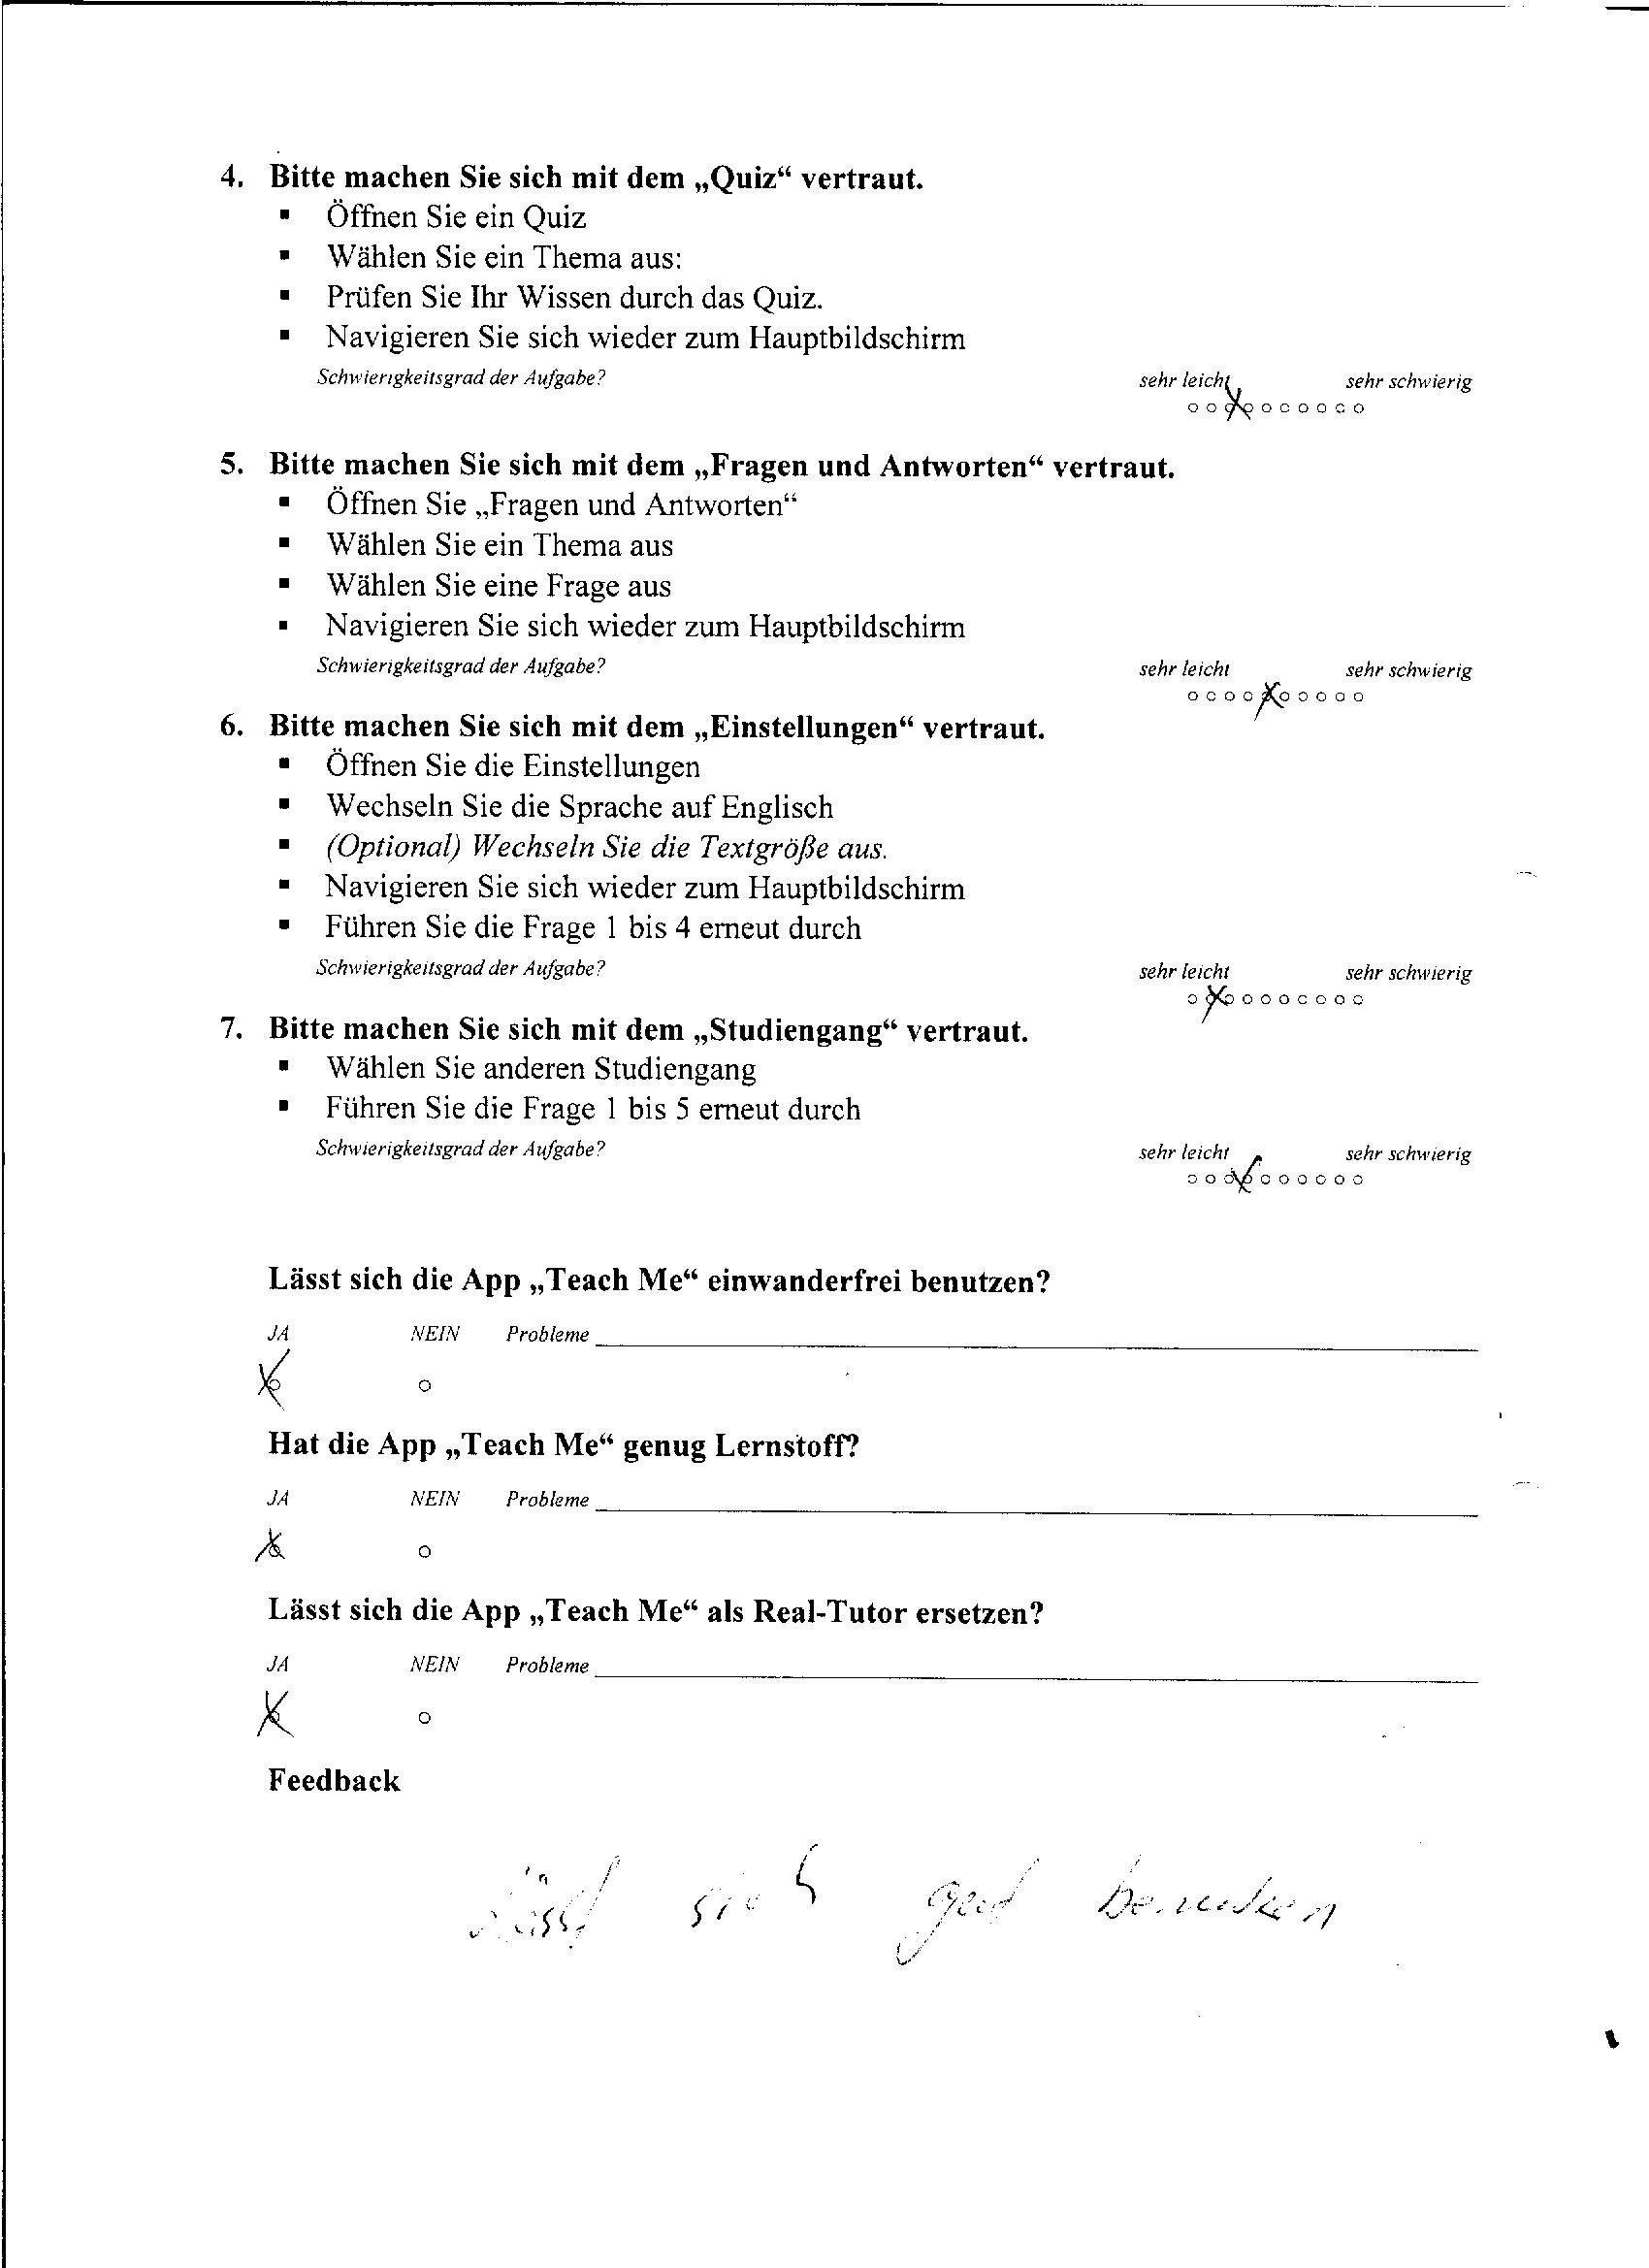 4. Bitte machen Sie sich mit dem „Quiz“ vertraut.
▪ Öffnen Sie ein Quiz
▪ Wählen Sie ein Thema aus:
▪ Prüfen Sie Ihr Wissen durch das Quiz.
▪ Navigieren Sie sich wieder zum Hauptbildschirm
Schwierigkeitsgrad der Aufgabe? sehr leicht sehr schwierig
5. Bitte machen Sie sich mit dem „Fragen und Antworten“ vertraut.
▪ Öffnen Sie „Fragen und Antworten“
▪ Wählen Sie ein Thema aus
▪ Wählen Sie eine Frage aus
▪ Navigieren Sie sich wieder zum Hauptbildschirm
Schwierigkeitsgrad der Aufgabe? sehr leicht sehr schwierig
6. Bitte machen Sie sich mit dem „Einstellungen“ vertraut.
▪ Öffnen Sie die Einstellungen
▪ Wechseln Sie die Sprache auf Englisch
▪ (Optional) Wechseln Sie die Textgröße aus.
▪ Navigieren Sie sich wieder zum Hauptbildschirm
▪ Führen Sie die Frage 1 bis 4 erneut durch
Schwierigkeitsgrad der Aufgabe? sehr leicht sehr schwierig
7. Bitte machen Sie sich mit dem „Studiengang“ vertraut.
▪ Wählen Sie anderen Studiengang
▪ Führen Sie die Frage 1 bis 5 erneut durch
Schwierigkeitsgrad der Aufgabe? sehr leicht sehr schwierig
Lässt sich die App „Teach Me“ einwanderfrei benutzen?
JA NEIN Probleme
Hat die App „Teach Me“ genug Lernstoff?
JA NEIN Probleme
Lässt sich die App „Teach Me“ als Real-Tutor ersetzen?
JA NEIN Probleme
Feedback
Lässt sich gut benutzen